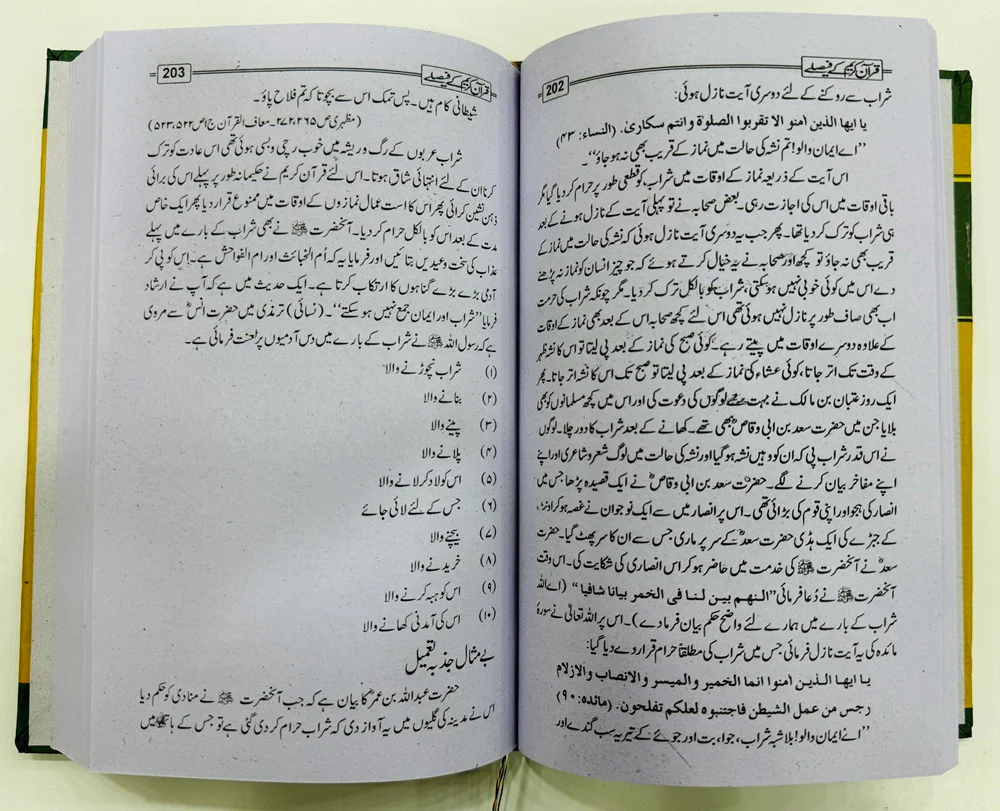 قرآن کریم کے فیصلے
202
شراب سے روکنے کے لئے دوسری آیت نازل ہوئی:
یا ایها الذین اٰمنو الا تقربوا الصلوٰة وانتم سکاریٰ. (النساء: ۴۳)
’’اے ایمان والو! تم نشہ کی حالت میں نماز کے قریب بھی نہ ہو جاؤ‘‘۔
اس آیت کے ذریعہ نماز کے اوقات میں شراب کو قطعی طور پر حرام کر دیا گیا مگر
باقی اوقات میں اس کی اجازت رہی۔ بعض صحابہ نے تو پہلی آیت کے نازل ہونے کے بعد
ہی شراب کو ترک کر دیا تھا۔ پھر جب یہ دوسری آیت نازل ہوئی کہ نشہ کی حالت میں نماز کے
قریب بھی نہ جاؤ تو کچھ اور صحابہ نے یہ خیال کرتے ہوئے کہ جو چیز انسان کو نماز نہ پڑھنے
دے اس میں کوئی خوبی نہیں ہو سکتی، شراب کو بالکل ترک کر دیا۔ مگر چونکہ شراب کی حرمت
اب بھی صاف طور پر نازل نہیں ہوئی تھی اس لئے کچھ صحابہ اس کے بعد بھی نماز کے اوقات
کے علاوہ دوسرے اوقات میں پیتے رہے۔ کوئی صبح کی نماز کے بعد پی لیتا تو اس کا نشہ ظہر
کے وقت تک اتر جاتا، کوئی عشاء کی نماز کے بعد پی لیتا تو صبح تک اس کا نشہ اتر جاتا۔ پھر
ایک روز عتبان بن مالک نے بہت سے لوگوں کی دعوت کی اور اس میں کچھ مسلمانوں کو بھی
بلایا جن میں حضرت سعد بن ابی وقاصؓ بھی تھے۔ کھانے کے بعد شراب کا دور چلا۔ لوگوں
نے اس قدر شراب پی کہ ان کو وہیں نشہ ہو گیا اور نشہ کی حالت میں لوگ شعر و شاعری اور اپنے
اپنے مفاخر بیان کرنے لگے۔ حضرت سعد بن ابی وقاصؓ نے ایک قصیدہ پڑھا جس میں
انصار کی ہجو اور اپنی قوم کی بڑائی تھی۔ اس پر انصار میں سے ایک نوجوان نے غصہ ہو کر اونٹ
کے جبڑے کی ایک ہڈی حضرت سعدؓ کے سر پر ماری جس سے ان کا سر پھٹ گیا۔ حضرت
سعدؓ نے آنحضرت ﷺ کی خدمت میں حاضر ہو کر اس انصاری کی شکایت کی۔ اس وقت
آنحضرت ﷺ نے دُعا فرمائی ’’اللهم بین لنا فی الخمر بیانا شافیا‘‘ (اے اللہ
شراب کے بارے میں ہمارے لئے واضح حکم بیان فرما دے)۔ اس پر اللہ تعالیٰ نے سورۂ
مائدہ کی یہ آیت نازل فرمائی جس میں شراب کی مطلقاً حرام قرار دے دیا گیا:
یا ایها الذین اٰمنوا انما الخمیر والمیسر والانصاب والازلام
رجس من عمل الشیطٰن فاجتنبوه لعلکم تفلحون. (مائدہ: ۹۰)
’’اے ایمان والو! بلا شبہ شراب، جوا، بت اور جوئے کے تیر یہ سب گندے اور
قرآن کریم کے فیصلے
203
شیطانی کام ہیں۔ پس تمک اس سے بچو تا کہ تم فلاح پاؤ۔
(مظہری ص ۲۶۵، ۲۷۲۔ معاف القرآن ج ا ص ۵۲۲، ۵۲۳)
شراب عربوں کے رگ و ریشہ میں خوب رچی و بسی ہوئی تھی اس عادت کو ترک
کرنا ان کے لئے انتہائی شاق ہوتا۔ اس لئے قرآن کریم نے حکیمانہ طور پر پہلے اس کی برائی
ذہن نشین کرائی پھر اس کا است عمال نمازوں کے اوقات میں ممنوع قرار دیا پھر ایک خاص
مدت کے بعد اس کو بالکل حرام کر دیا۔ آنحضرت ﷺ نے بھی شراب کے بارے میں پہلے
عذاب کی سخت وعیدیں بتائیں اور فرمایا یہ کہ اُم الخبائث اور ام الفواحش ہے۔ اس کو پی کر
آدمی بڑے بڑے گناہوں کا ارتکاب کرتا ہے۔ ایک حدیث میں ہے کہ آپ نے ارشاد
فرمایا ’’شراب اور ایمان جمع نہیں ہو سکتے‘‘۔ (نسائی) ترمذی میں حضرت انسؓ سے مروی
ہے کہ رسول اللہ ﷺ نے شراب کے بارے میں دس آدمیوں پر لعنت فرمائی ہے۔
(۱) شراب نچوڑنے والا
(۲) بنانے والا
(۳) پینے والا
(۴) پلانے والا
(۵) اس کو لاد کر لانے والا
(۶) جس کے لئے لائی جائے
(۷) بیچنے والا
(۸) خریدنے والا
(۹) اس کو ہبہ کرنے والا
(۱۰) اس کی آمدنی کھانے والا
بے مثال جذبہ تعمیل
حضرت عبداللہ بن عمرؓ کا بیان ہے کہ جب آنحضرت ﷺ نے منادی کو حکم دیا
اس نے مدینہ کی گلیوں میں یہ آواز دی کہ شراب حرام کر دی گئی ہے تو جس کے ہاتھ میں